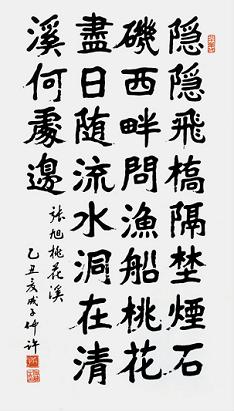 隐隐飛槗隔埜煙石
磯西畔問漁船桃花
盡日随流水洞在清
溪何處邊
张旭桃花溪
乙丑